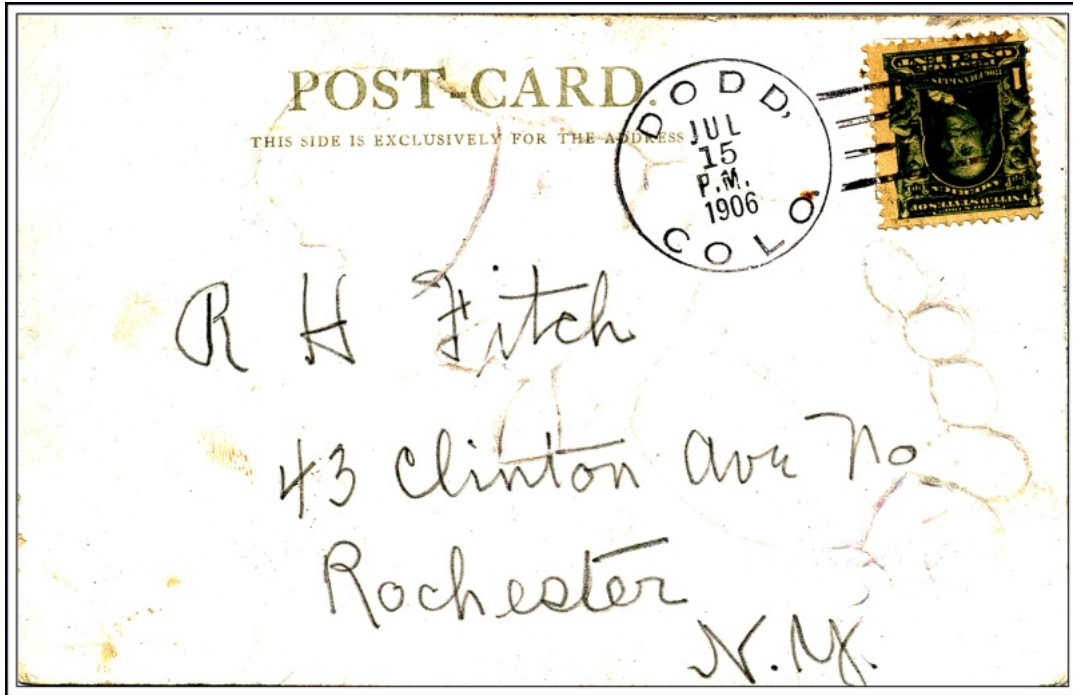 POST-CARD
THIS SIDE IS EXCLUSIVELY FOR THE ADDRESS
DODD,
JUL
15
P.M.
1906
COLO.
R H Fitch
43 Clinton Ave No
Rochester
N.Y.